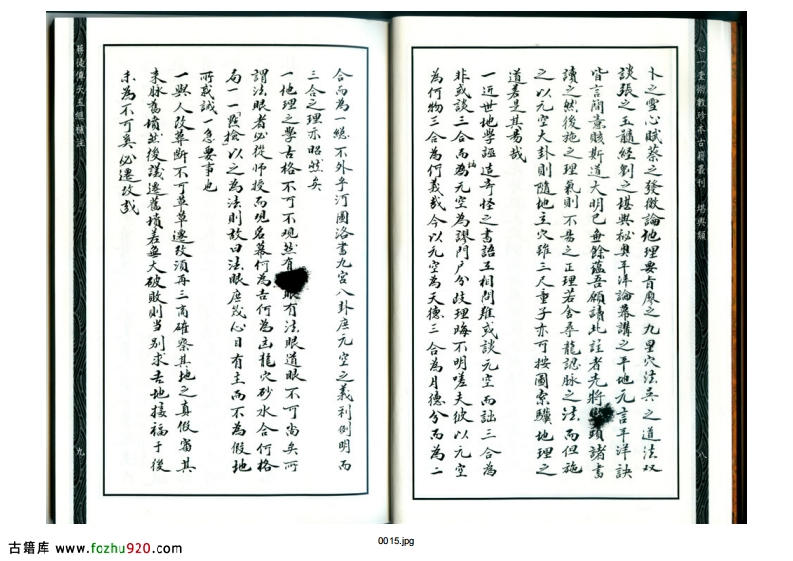 心一堂術數珍本古籍叢刊 堪輿類
八
卜之雪心賦蔡之發微論地理要旨廖之九星穴法吳之道法双
談張之玉髓經劉之堪輿秘奧平洋論幕講之平地元言平洋訣
皆言簡意賅斯道大明已無餘蘊吾願讀此註者先將頭諸書
讀之然後施之理氣則不易之正理若舍尋龍認脉之法而但施
之以元空大卦則隨地立穴雖三尺童子亦可按圖索驥地理之
道若是其易哉
一近世地學誣造奇怪之書語互相問難或談元空而詘三合為
非或談三合而詘元空為謬門戶分歧理晦不明嗟夫彼以元空
為何物三合為何義哉今以元空為天德三合為月德分而為二
合而為一總不外乎河圖洛書九宮八卦庶元空之義利例明而
三合之理亦昭然矣
一地理之學古格不可不观然有眼有法眼道眼不可尚矣所
謂法眼者必從師授而現名墓何為吉何為凶龍穴砂水合何格
局一一點撿以之為法則故曰法眼庶几心目有主而不為假地
所惑誠一急要事也
一興人改葬斷不可草草遷改須再三商確察其地之真假審其
来脉舊墳然後議遷舊墳若無大破敗則当别求吉地接福于後
未為不可奚必遷改哉
蔣徒傳天玉經補注
九
古籍库 www.fozhu920.com
0015.jpg